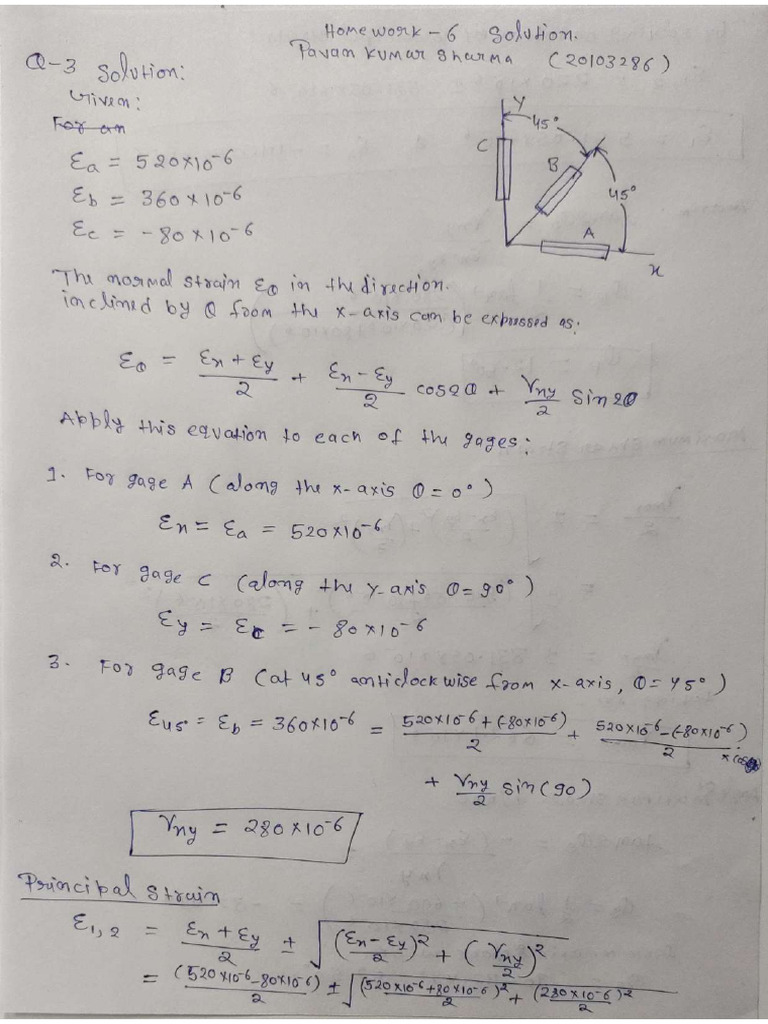 Homework-6 Solution.
Pavan Kumar Sharma (20103286)
Q-3 Solution:
Given:
For an
Ea = 520×10-6
Eb = 360×10-6
Ec = -80×10-6
Y
45°
C
B
45°
A
x
The normal strain Eθ in the direction.
inclined by θ from the x-axis can be expressed as:
Eθ = Ex + Ey / 2 + Ex - Ey / 2 cos2θ + γxy / 2 Sin 2θ
Apply this equation to each of the gages:
1. For gage A (along the x-axis θ=0°)
Ex = Ea = 520×10-6
2. For gage C (along the y-axis θ=90°)
Ey = Ec = -80×10-6
3. For gage B (at 45° anticlockwise from x-axis, θ=45°)
E45° = Eb = 360×10-6 = 520×10-6 + (-80×10-6) / 2 + 520×10-6 - (-80×10-6) / 2
+ γxy / 2 sin(90)
γxy = 280×10-6
Principal Strain
E1,2 = Ex + Ey / 2 ± √(Ex - Ey / 2)2 + (γxy / 2)2
= (520×10-6 - 80×10-6) / 2 ± √(520×10-6 + 80×10-6 / 2)2 + (280×10-6 / 2)2